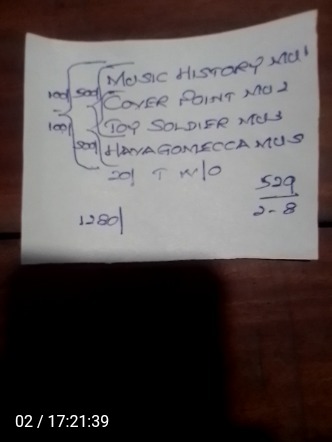 100/ 500/ MUSIC HISTORY MU1
COVER POINT MU2
100/ TOY SOLDIER MU3
500/ HAYAGOMECCA MU5
20/ T W/O
529
1280/
2-8
02 / 17:21:39